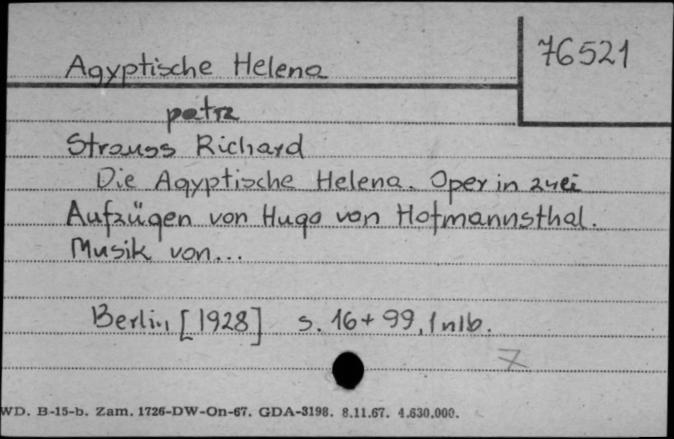 76521
Agyptische Helena
patrz
Strauss Richard
Die Agyptische Helena. Oper in zwei
Aufzügen von Hugo von Hofmannsthal.
Musik von...
Berlin [1928] s. 16+99, 1 nlb.
7
WD. B-15-b. Zam. 1726-DW-On-67. GDA-3198. 8.11.67. 4.630.000.